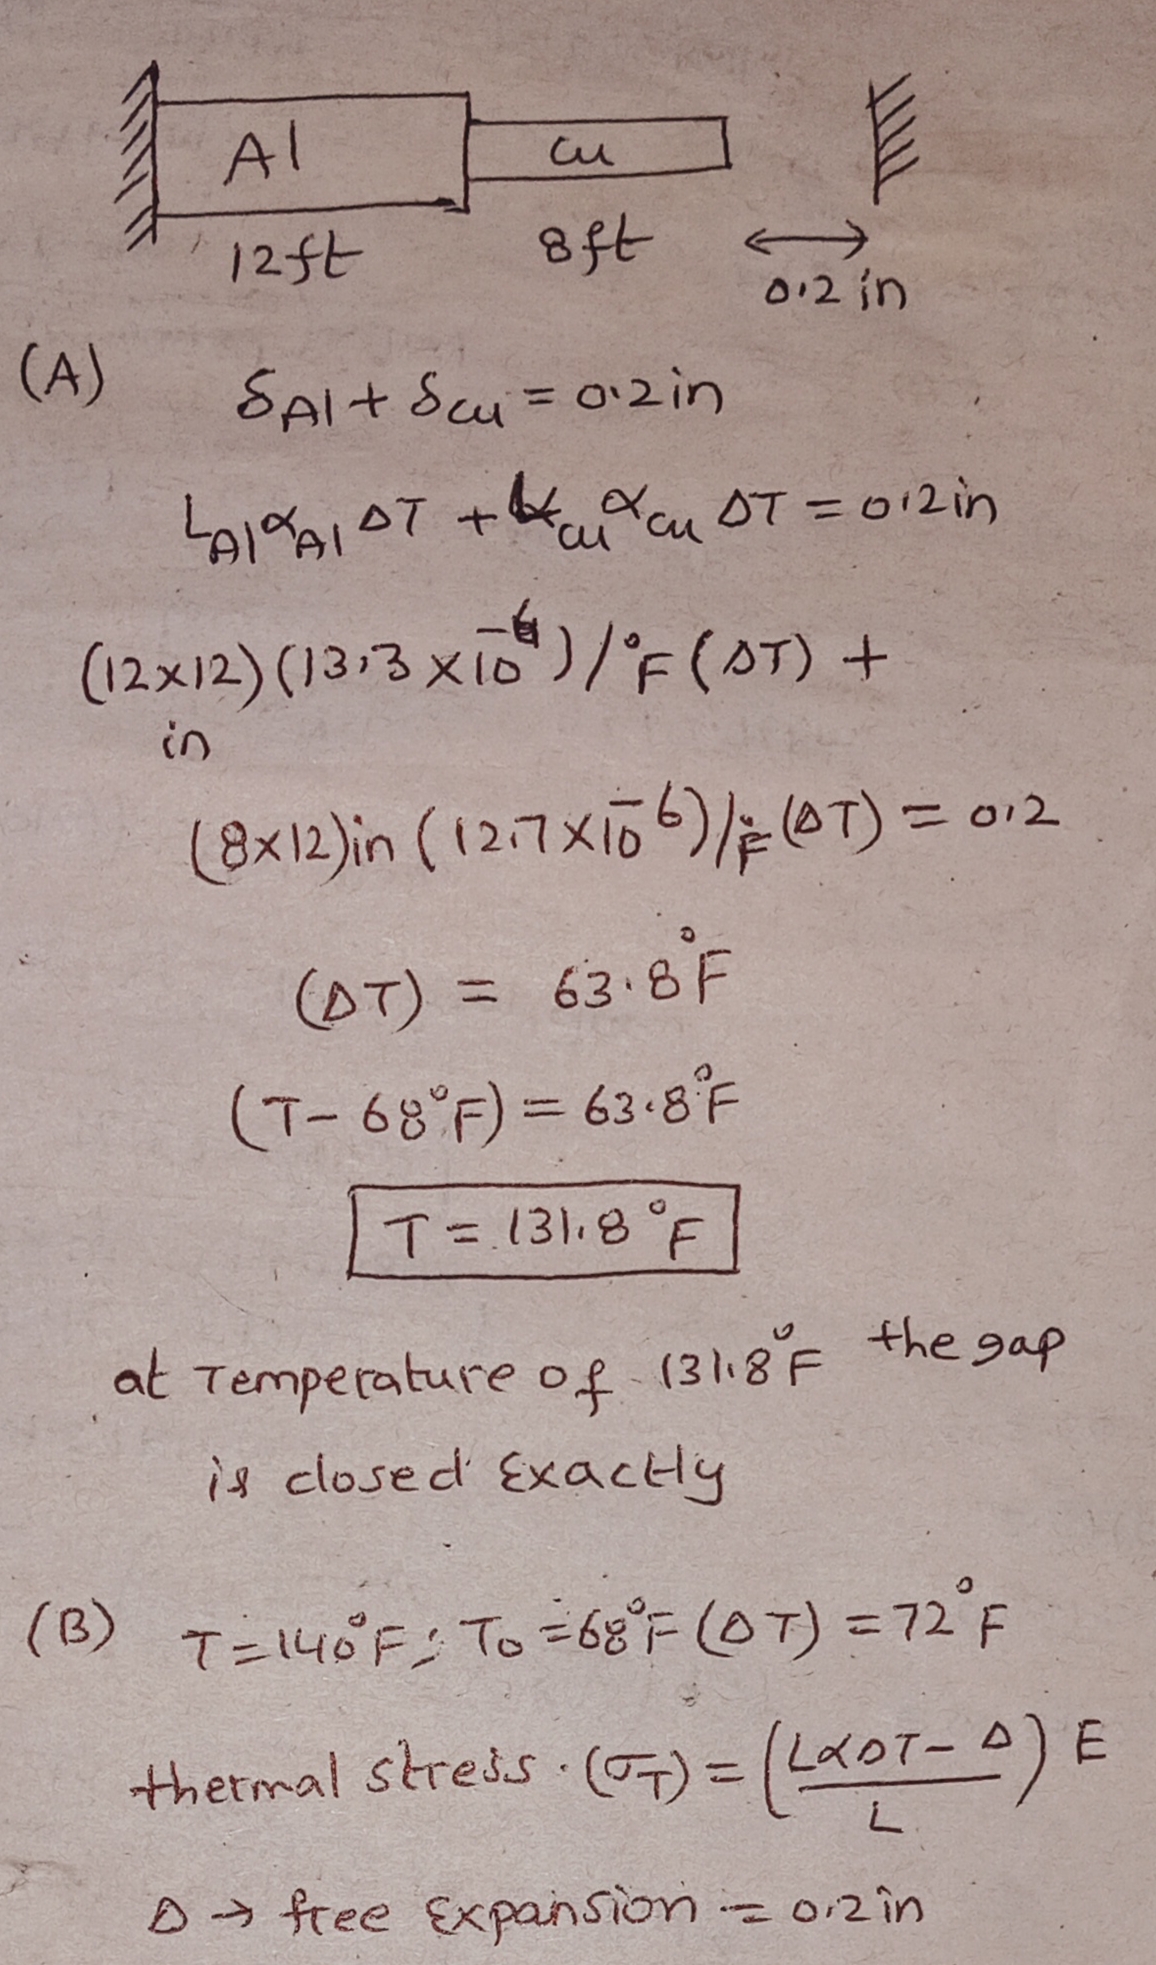 Al
Cu
12ft
8ft
0.2 in
(A) δAl + δcu = 0.2in
LAl αAl ΔT + Lcu αcu ΔT = 0.2in
(12x12)(13.3 x10⁻⁶)/°F (ΔT) +
in
(8x12)in (12.7 x10⁻⁶)/°F (ΔT) = 0.2
(ΔT) = 63.8°F
(T- 68°F) = 63.8°F
T = 131.8 °F
at Temperature of 131.8°F the gap
is closed Exactly
(B) T=140°F; To =68°F (ΔT) = 72°F
thermal stress. (σT) = (LαΔT - Δ / L) E
Δ → free Expansion = 0.2in